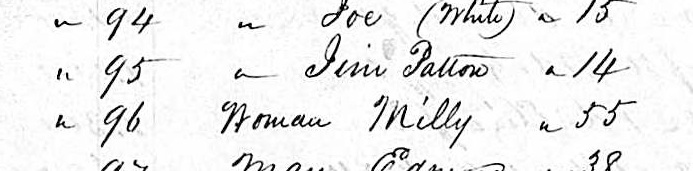 " 94 " Joe (White) " 15
" 95 " Jim Patton " 14
" 96 Woman Milly " 55
" 97 Man " 38